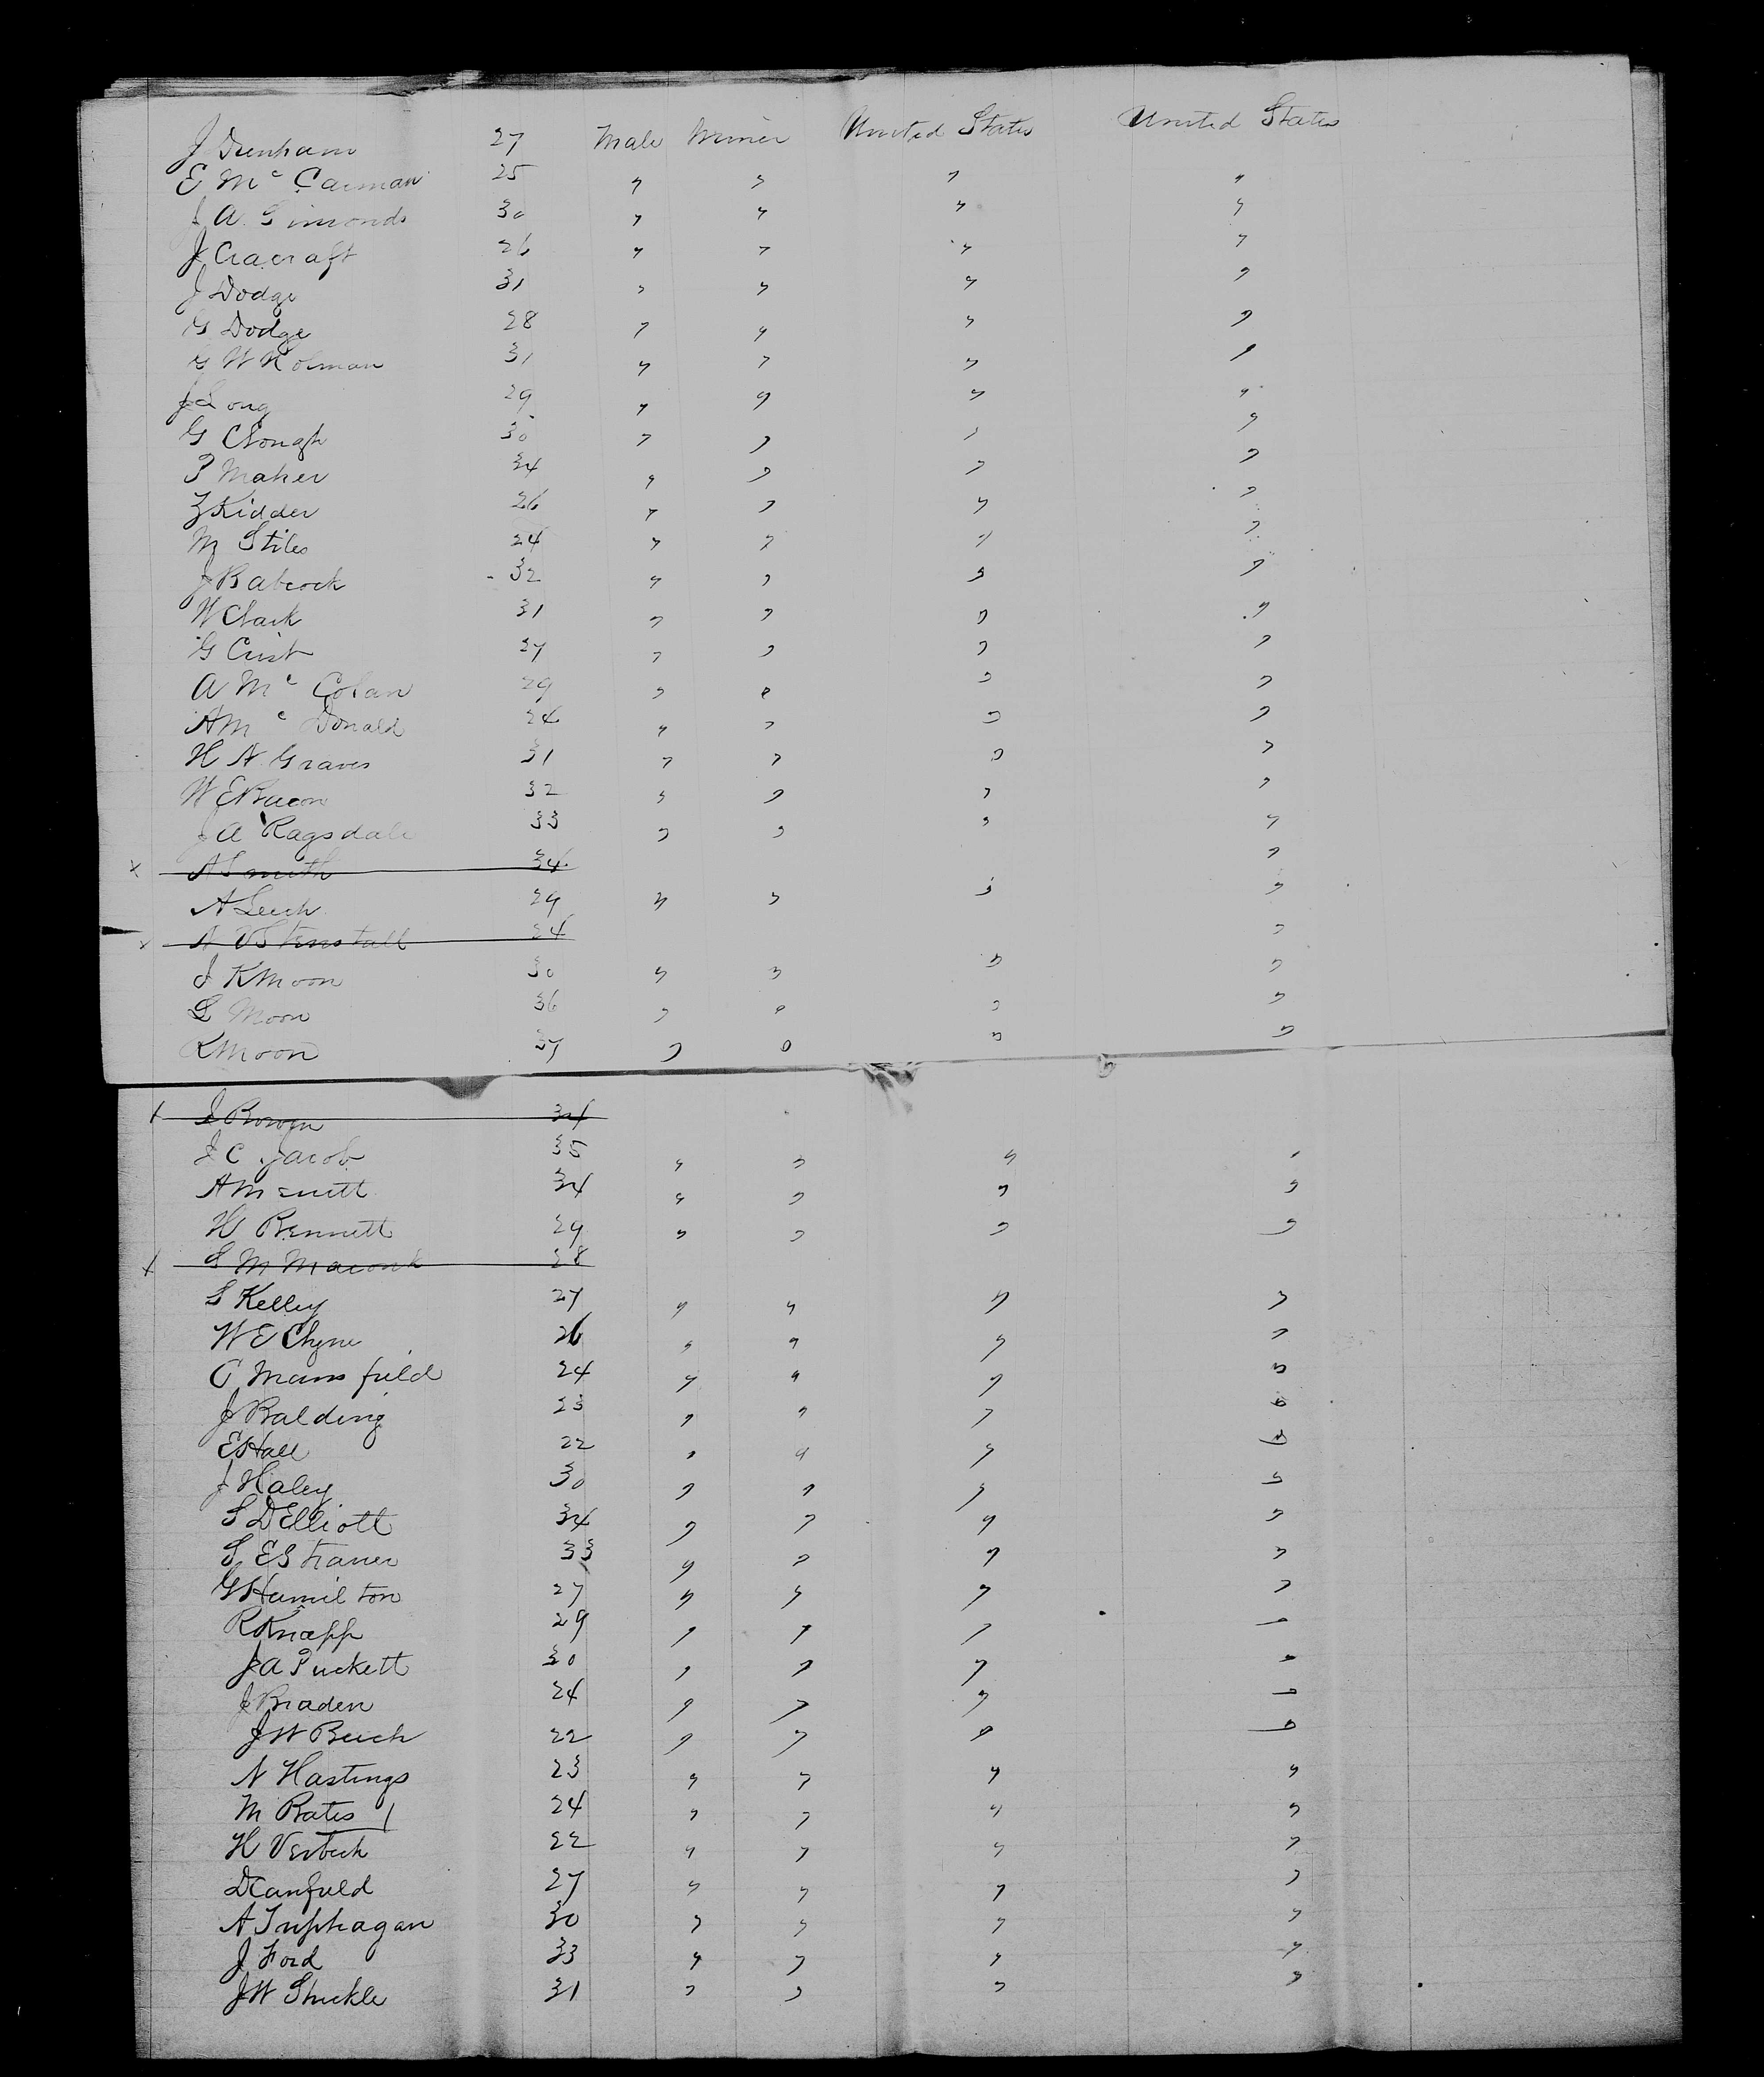 J Denham 27 Male Miner United States United States
E Mc Carman 25 " " " "
J A Simonds 30 " " " "
J Cracraft 26 " " " "
J Dodge 31 " " " "
G Dodge 28 " " " "
G W Holman 31 " " " "
J Long 29 " " " "
G Clough 30 " " " "
P Maher 34 " " " "
Z Kidder 26 " " " "
M Stiles 24 " " " "
J Babcock 32 " " " "
W Clark 31 " " " "
G Crist 27 " " " "
A Mc Colan 29 " " " "
A Mc Donald 24 " " " "
H N Graves 31 " " " "
W E Bacon 32 " " " "
J A Ragsdale 33 " " " "
x A Smith 34 "
A Leech 29 " " " "
x A V Stinstall 24 "
J K Moon 30 " " " "
L Moon 36 " " " "
K Moon 37 " " " "
x J Bowen 34
J C Jacob 35 " " " "
A 34 " " " "
H Bennett 29 " " " "
x S M 28
S Kelley 27 " " " "
W E Chyne 26 " " " "
C Mansfield 24 " " " "
J Balding 23 " " " "
E Hall 22 " " " "
J Haley 30 " " " "
S D Elliott 34 " " " "
S E Straner 33 " " " "
G Hamilton 27 " " " "
R Knapp 29 " " " "
J A Puckett 30 " " " "
J Braden 24 " " " "
J W Beich 22 " " " "
N Hastings 23 " " " "
M Bates 24 " " " "
H Verbeck 22 " " " "
D Canfield 27 " " " "
A 30 " " " "
J Ford 33 " " " "
J W Stuckle 31 " " " "